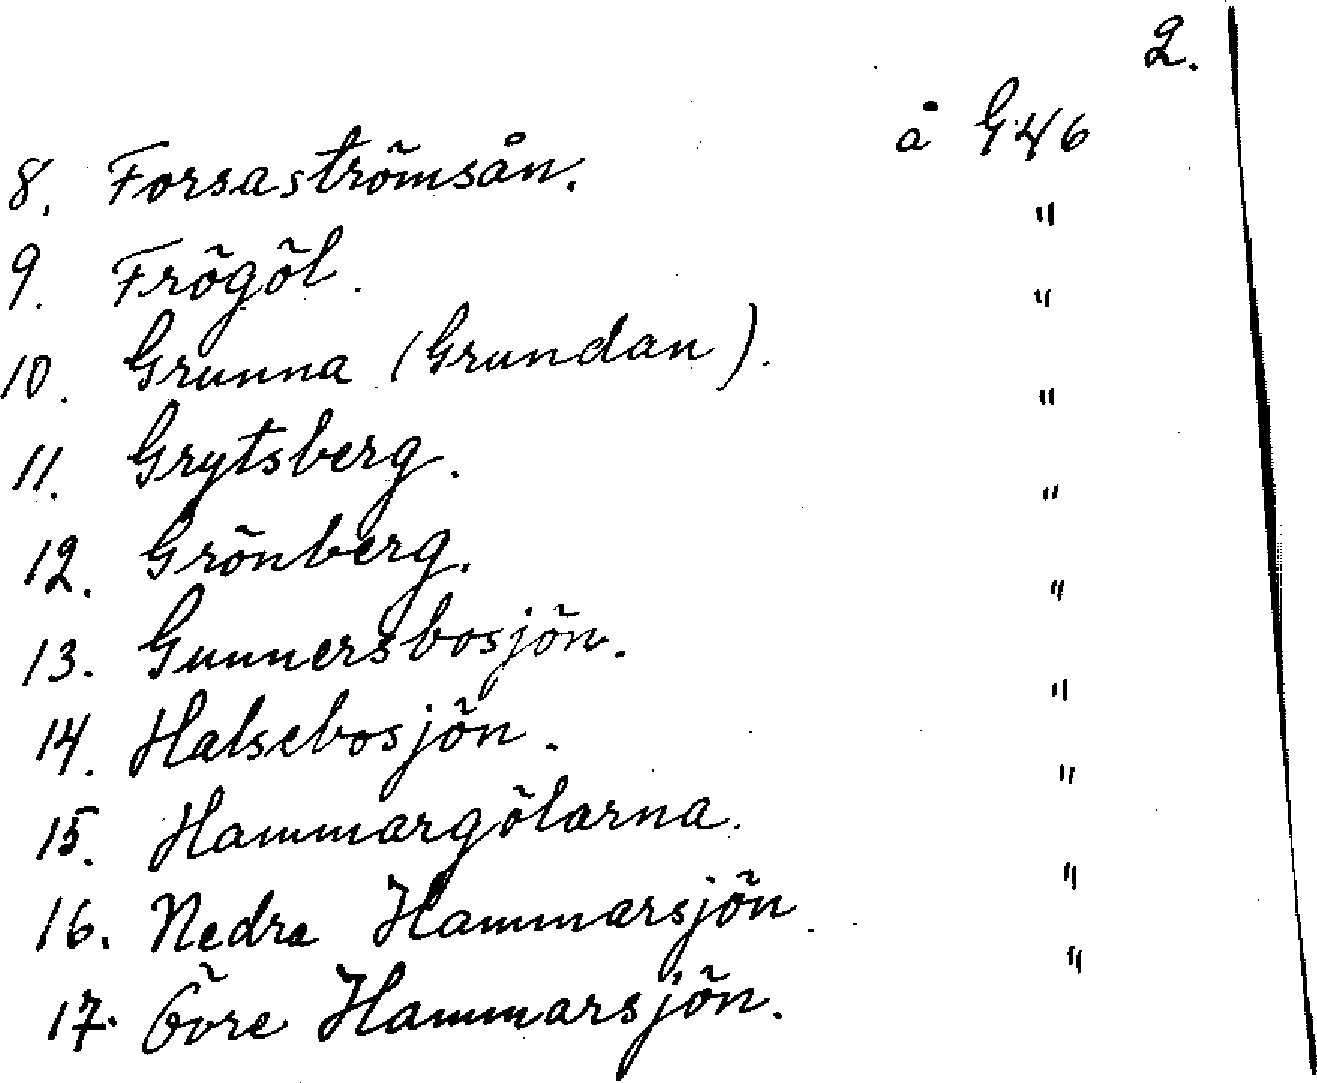 2.
8. Forsaströmsån. å G46
9. Frögöl. "
10. Grunna (Grundan). "
11. Grytsberg. "
12. Grönberg. "
13. Gunnersbosjön. "
14. Halsebosjön. "
15. Hammargölarna. "
16. Nedre Hammarsjön. "
17. Övre Hammarsjön. "